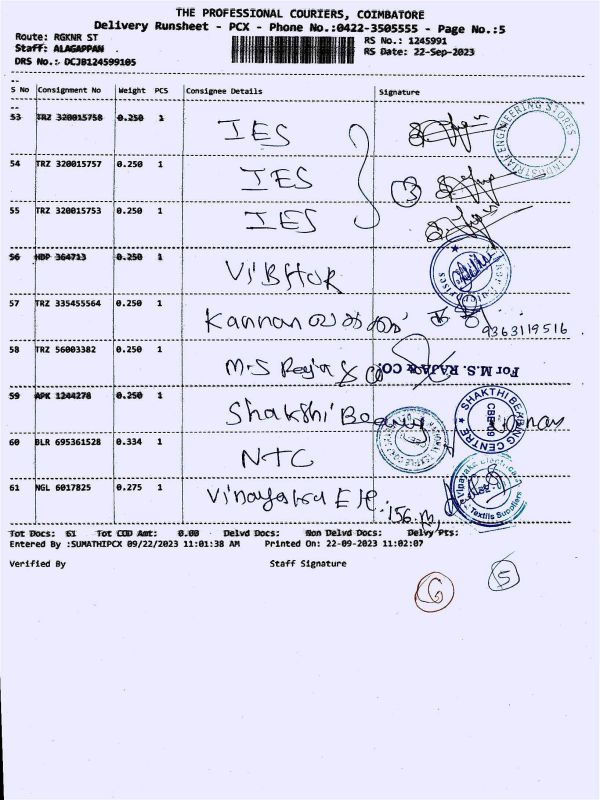 THE PROFESSIONAL COURIERS, COIMBATORE
Delivery Runsheet - PCX - Phone No.:0422-3505555 - Page No.:5
Route: RGKNR ST
RS No.: 1245991
Staff: ALAGAPPAN
RS Date: 22-Sep-2023
DRS No.: DCJB124599105
S No Consignment No Weight PCS Consignee Details Signature
53 TRZ 320015758 0.250 1 IES
INDUSTRIAL ENGINEERING STORES
54 TRZ 320015757 0.250 1 IES 3
55 TRZ 320015753 0.250 1 IES
56 HDP 364713 0.250 1 VIBHOR
57 TRZ 335455564 0.250 1 Kannan
9363119516
58 TRZ 56003382 0.250 1 M.S Raja & Co
For M.S. RAJA & CO.
59 APK 1244278 0.250 1 Shakthi
SHAKTHI BEARING CENTRE
60 BLR 695361528 0.334 1 NTC
61 NGL 6017825 0.275 1
156.m
Textils Suppliers
Tot Docs: 61 Tot COD Amt: 0.00 Delvd Docs: Non Delvd Docs: Delvy Pts:
Entered By :SUMATHIPCX 09/22/2023 11:01:38 AM Printed On: 22-09-2023 11:02:07
Verified By Staff Signature
6 5